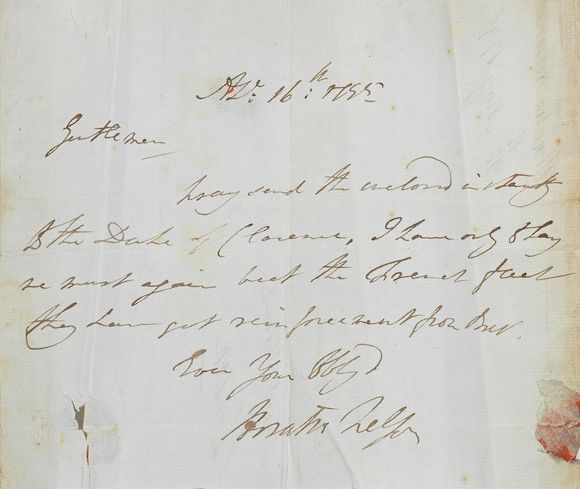 Apl: 16:th 1795
Gentlemen
pray send the enclosed instantly
to the Duke of Clarence, I have only to say
we must again beat the French fleet
they have got reinforcement from Brest.
Ever Your Obligd
Horatio Nelson